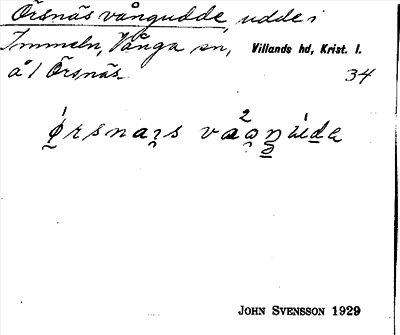 Örsnäs vångudde, udde i
Immeln, Vånga sn, Villands hd, Krist. l.
å l Örsnäs.
34
JOHN SVENSSON 1929